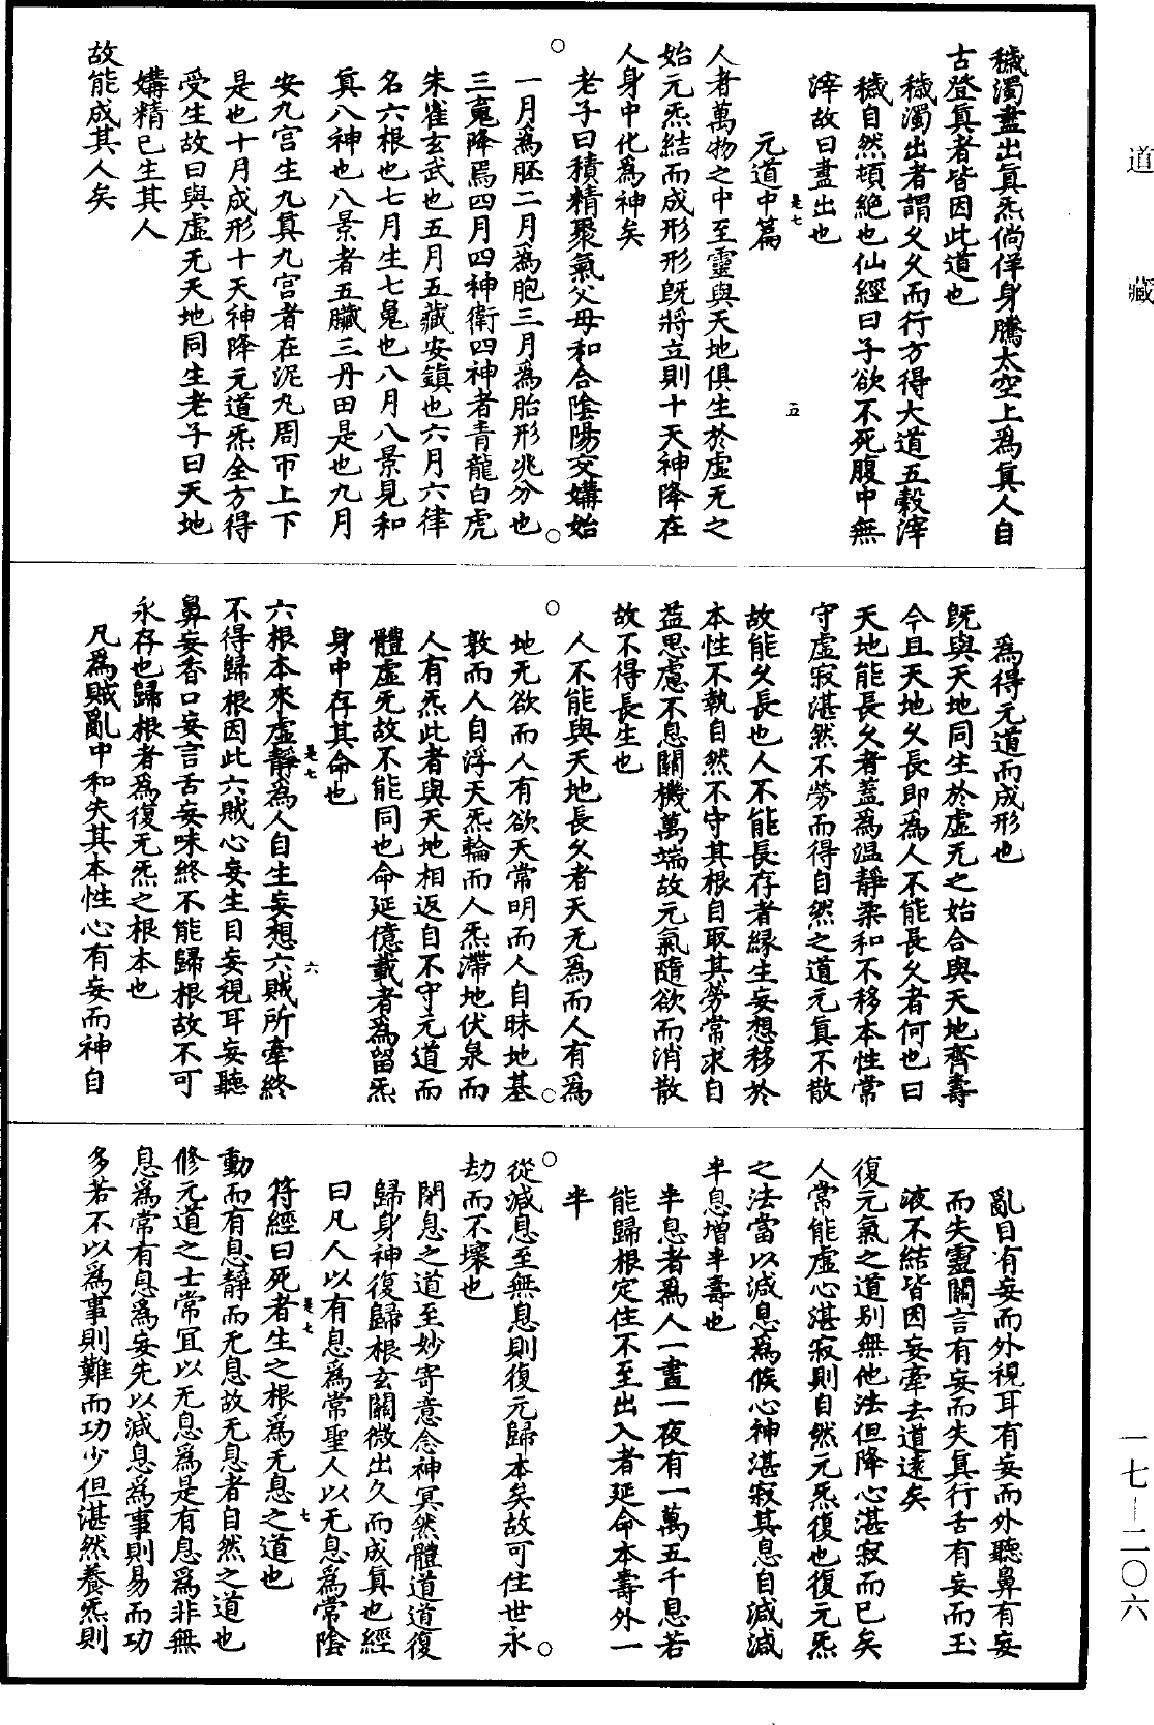 道藏
穢濁盡出真炁倘佯身騰太空上為真人自
古登真者皆因此道也
穢濁出者謂久久而行方得大道五穀滓
穢自然頓絶也仙經曰子欲不死腹中無
滓故曰盡出也
是七
五
元道中篇
人者萬物之中至靈與天地俱生於虛无之
始元炁結而成形形旣將立則十天神降在
人身中化為神矣
老子曰積精聚氣父母和合陰陽交媾始
一月為胚二月為胞三月為胎形兆分也
三䰟降焉四月四神衛四神者青龍白虎
朱雀玄武也五月五藏安鎮也六月六律
名六根也七月生七鬼也八月八景見和
真八神也八景者五臟三丹田是也九月
安九宫生九真九宫者在泥丸周帀上下
是也十月成形十天神降元道炁全方得
受生故曰與虛无天地同生老子曰天地
媾精已生其人
故能成其人矣
為得元道而成形也
旣與天地同生於虛无之始合與天地齊壽
今且天地久長即為人不能長久者何也曰
天地能長久者蓋為温靜柔和不移本性常
守虛寂湛然不勞而得自然之道元真不散
故能久長也人不能長存者緣生妄想移於
本性不執自然不守其根自取其勞常求自
益思慮不息關機萬端故元氣隨欲而消散
故不得長生也
人不能與天地長久者天无為而人有為
地无欲而人有欲天常明而人自昧地基
敦而人自浮天炁輪而人炁滯地伏泉而
人有炁此者與天地相返自不守元道而
體虛无故不能同也命延億載者為留炁
身中存其命也
是七
六
六根本來虛靜為人自生妄想六賊所牽終
不得歸根因此六賊心妄生目妄視耳妄聽
鼻妄香口妄言舌妄味終不能歸根故不可
永存也歸根者為復无炁之根本也
凡為賊亂中和失其本性心有妄而神自
亂目有妄而外視耳有妄而外聽鼻有妄
而失靈關言有妄而失真行舌有妄而玉
液不結皆因妄牽去道遠矣
復元氣之道别無他法但降心湛寂而已矣
人常能虛心湛寂則自然元炁復也復元炁
之法當以減息為候心神湛寂其息自減減
半息增半壽也
半息者為人一晝一夜有一萬五千息若
能歸根定住不至出入者延命本壽外一
半
從減息至無息則復元歸本矣故可住世永
劫而不壞也
閉息之道至妙寄意念神冥然體道道復
歸身神復歸根玄關微出久而成真也經
曰凡人以有息為常聖人以无息為常陰
是七
七
符經曰死者生之根為无息之道也
動而有息靜而无息故无息者自然之道也
修元道之士常宜以无息為是有息為非無
息為常有息為妄先以減息為事則易而功
多若不以為事則難而功少但湛然養炁則
一七—二〇六